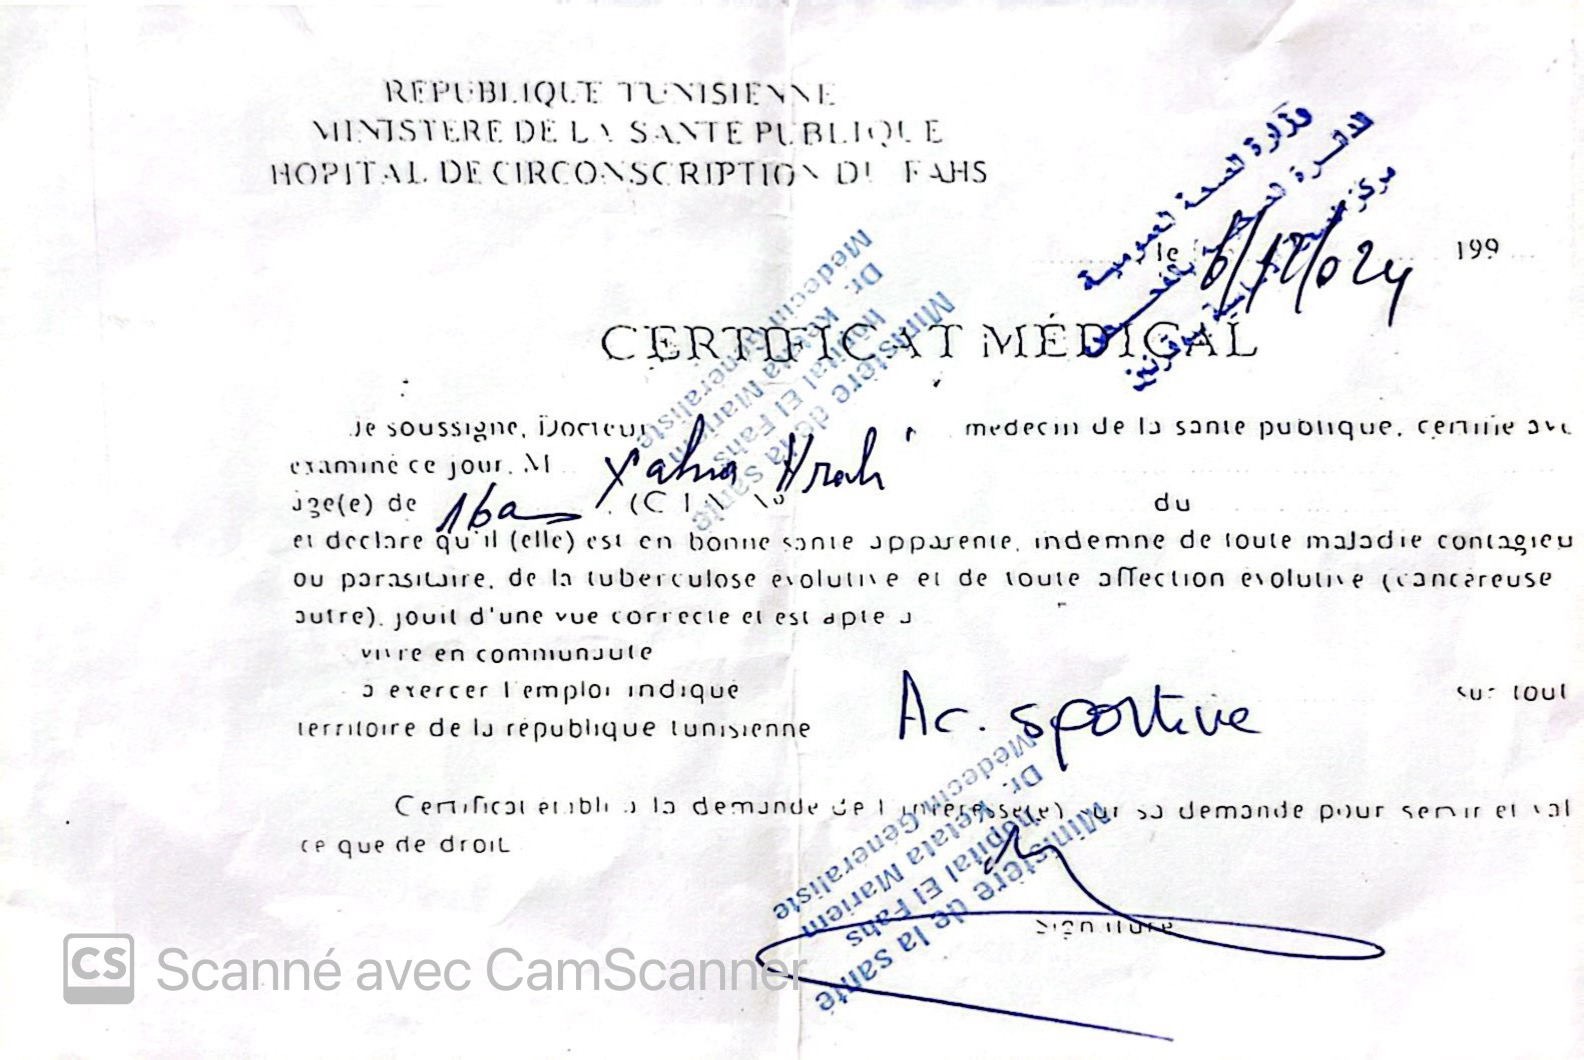 REPUBLIQUE TUNISIENNE
MINISTERE DE LA SANTE PUBLIQUE
HOPITAL DE CIRCONSCRIPTION DU FAHS
وزارة الصحة العمومية
le 6/12/024 199
CERTIFICAT MÉDICAL
Ministère de la santé
hôpital El Fahs
Dr. Ketata Mariem
Médecin Généraliste
Je soussigne, Docteur medecin de la sante publique, certifie avo
examine ce jour, M
age(e) de 16 a (C I N No du
et declare qu'il (elle) est en bonne sante apparente, indemne de toute maladie contagieu
ou parasitaire, de la tuberculose evolutive et de toute affection evolutive (cancereuse
autre), jouit d'une vue correcte et est apte a
vivre en communaute
a exercer l'emploi indique sur tout
territoire de la republique tunisienne Ac. sportive
Certificat etabli a la demande de l'interesse(e) sur sa demande pour servir et val
ce que de droit
Ministère de la santé
hôpital El Fahs
Dr. Ketata Mariem
Médecin Généraliste
Signature
CS Scanné avec CamScanner